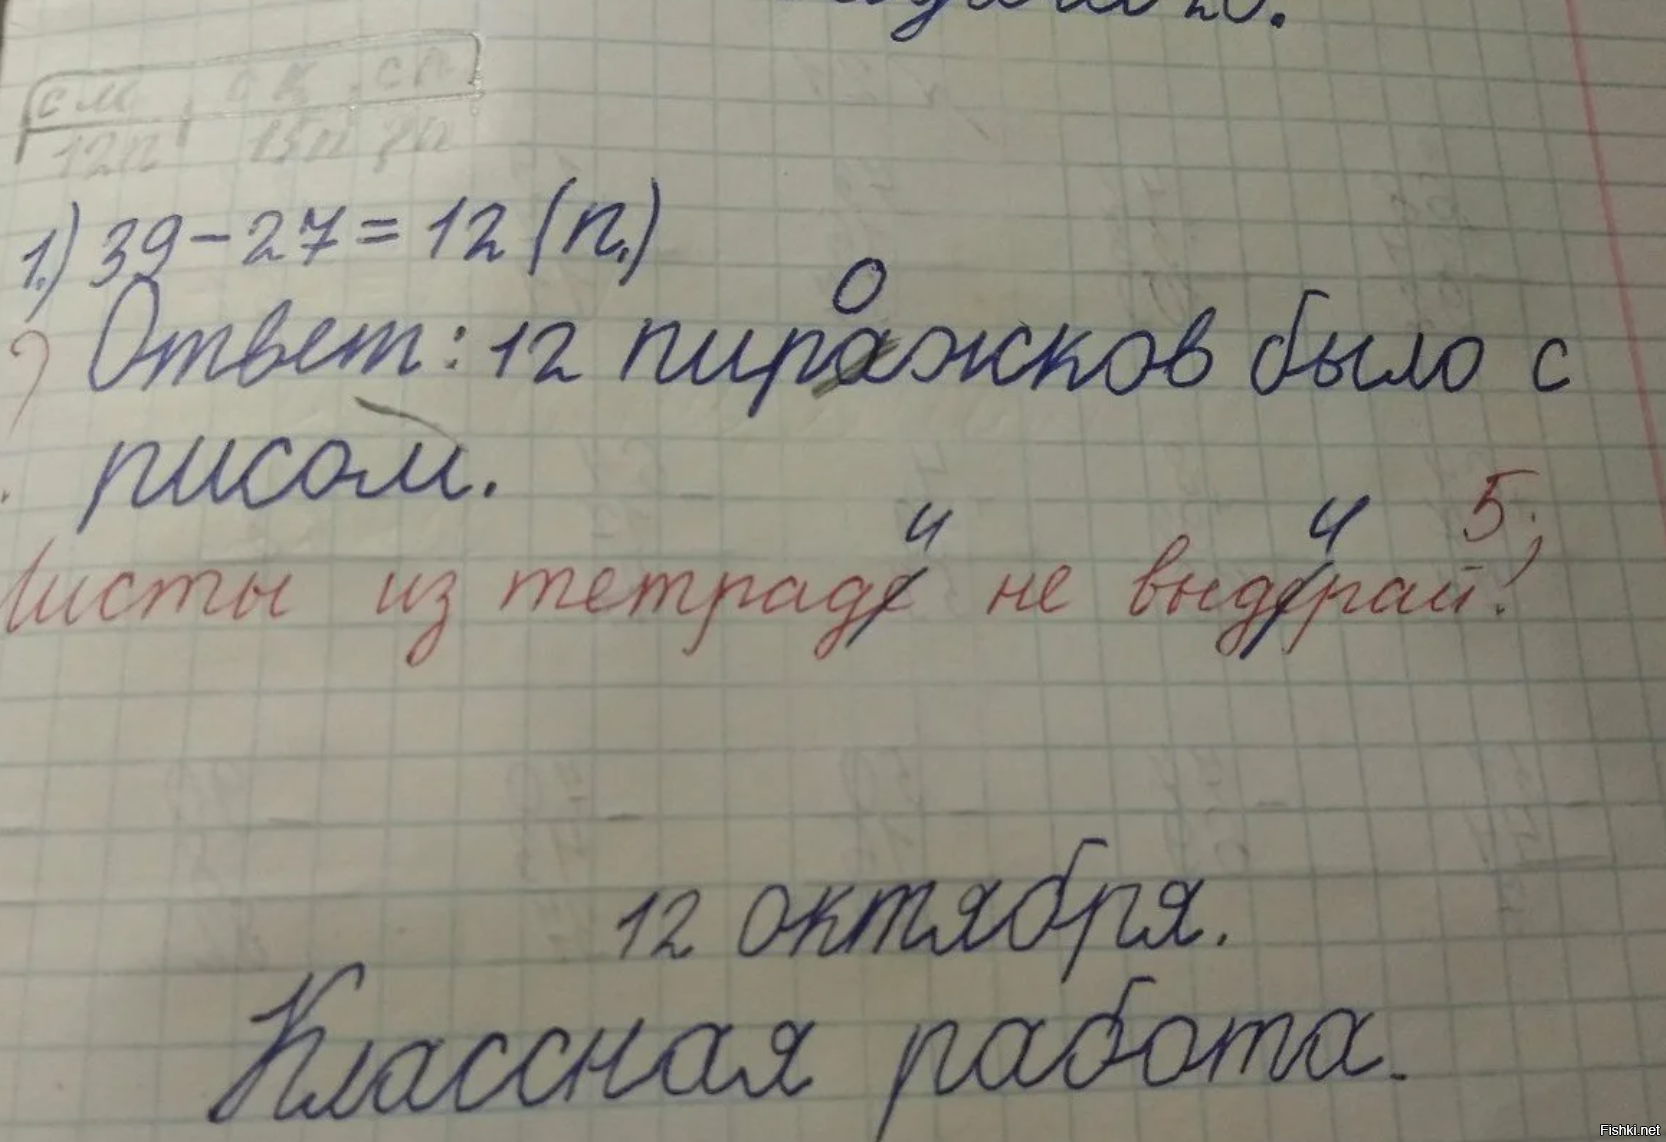 см ск сп
12п 15п
1.) 39-27=12 (п.)
о
Ответ: 12 пиражков было с
рисом.
и и 5;
Листы из тетраде не выдерай!
12 октября.
Классная работа.
Fishki.net